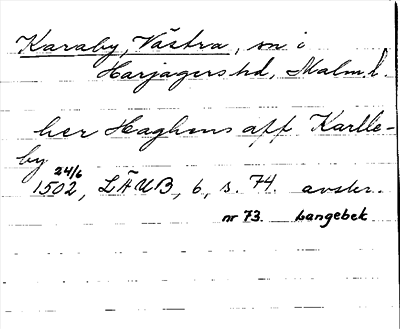 Karaby, Västra, sn i
Harjagers hd, Malm. l.
her Haghens aff Karlle-
by
24/6
1502, LÄUB, 6, s. 74. avskr.
nr 73. Langebek